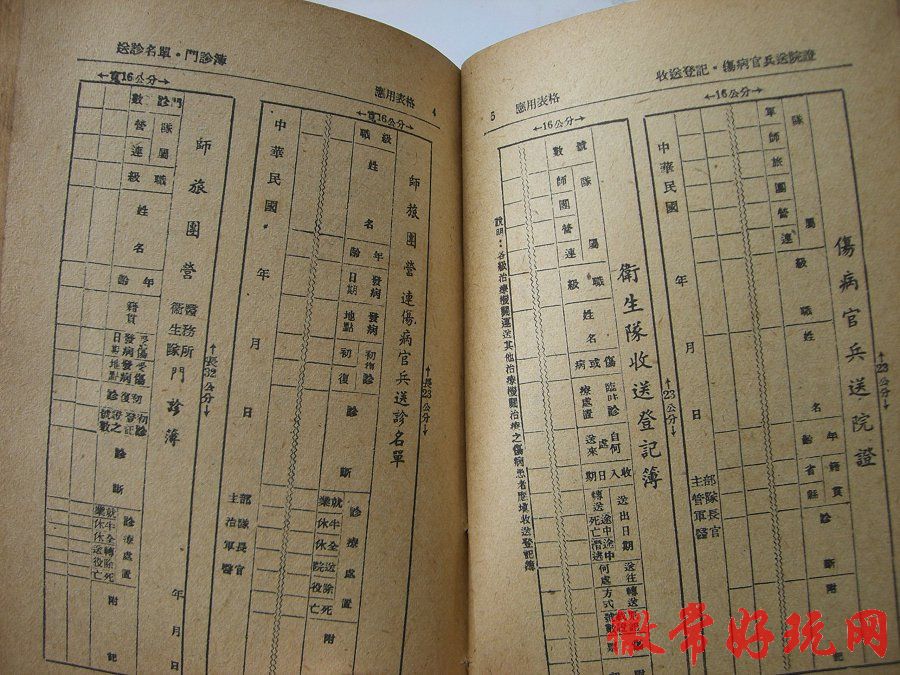 收送登記．傷病官兵送院證
應用表格
5
傷病官兵送院證
←23公分→
←16公分→
隊屬
軍師旅團營連
級職
姓名
年齡
籍貫
省縣
診斷
中華民國 年 月 日
部隊長官
主管軍醫
衛生隊收送登記簿
←23公分→
←16公分→
號數
隊屬
師團營連
級職
姓名
傷或病
臨時診療處置
自何處送來
收入日期
送出日期
途中死亡
途中潛逃
送往何處
轉送方式
說明：各級治療機關運送其他治療機關治療之傷病患者應填收送登記簿
送診名單．門診簿
應用表格
4
師旅團營連傷病官兵送診名單
←長23公分→
←寬16公分→
級職
姓名
年齡
發病日期
發病地點
初診
復診
診斷
診療處置
就業
半休
全休
送院
除役
死亡
附
中華民國 年 月 日
部隊長官
主治軍醫
師旅團營
醫務所
衛生隊
門診簿
←長32公分→
←寬16公分→
門診號數
隊屬
營連
職級
姓名
年齡
籍貫
受傷發病日期
受傷發病地點
初診
復診
初診之登記號數
診斷
診療處置
就業
半休
全休
轉送
除役
死亡
附記
年 月 日
徽常好玩网